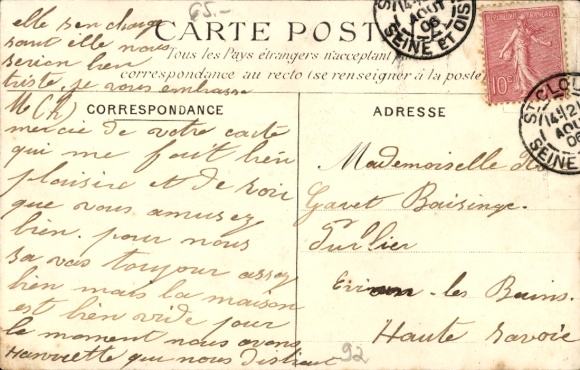 65.-
CARTE POSTALE
Tous les Pays étrangers n'acceptant
correspondance au recto (se renseigner à la poste)
CORRESPONDANCE
merci de votre carte
qui me fait bien
plaisire et de voir
que vous amusez
bien. pour nous
sa vas toujour assez
bien mais la maison
est bien vide pour
le moment nous avons
Henriette qui nous distrait
elle s'en charge
sant elle nous
serion bien
triste, je vous embrasse
M (h)
ADRESSE
Mademoiselle
Gavet Baisinge
Purlier
les Bains
Haute Savoie
92
ST CLOUD
AOUT
06
SEINE ET OISE
REPUBLIQUE FRANÇAISE
10c
ST CLOUD
AOUT
06
SEINE